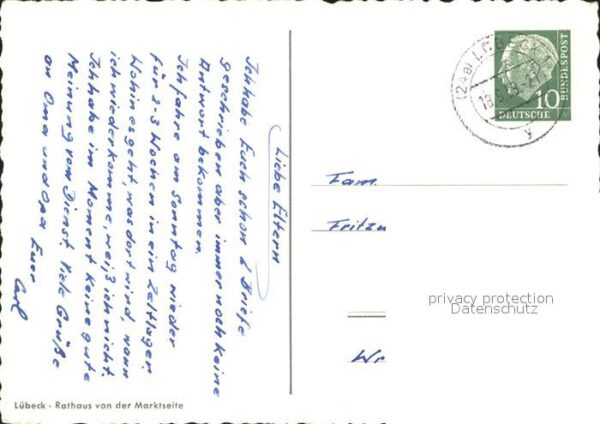 Liebe Eltern
Ich habe Euch schon 2 Briefe
geschrieben aber immer noch keine
Antwort bekommen.
Ich fahre am Sonntag wieder
für 2-3 Wochen in ein Zeltlager
Wohin es geht, was dort wird, wann
ich wiederkomme, weiß ich nicht.
Ich habe im Moment keine gute
Meinung vom Dienst. Viele Grüße
an Oma und Opa Euer
Carl
Lübeck - Rathaus von der Marktseite
DEUTSCHE
BUNDESPOST
10
(24a)
y
Fam
Fritz
privacy protection
Datenschutz
Wr